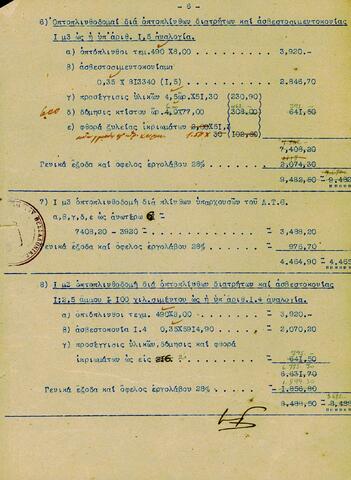 - 6 -
6) Οπτοπλινθοδομαί διά οπτοπλίνθων διατρήτων καί ασβεστοσιμεντοκονίας
Ι μ3 ώς ή ύπ'άριθ. Ι,5 άναλογία.
α) οπτόπλινθοι τεμ.490 Χ8,00 . . . . . . = 3,920.-
β) ασβεστοσιμεντοκονίαμα
0,35 Χ 8Ι3340 (Ι,5) . . . . . . = 2,846.70
γ) προσέγγισις ύλικών 4,5ωρ.Χ5Ι,30 (230,90)
δ) δόμησις κτίστου ωρ.4,0Χ77,00 (308,00) = 64Ι,50
600
ε) φθορά ξυλείας ίκριωμάτων 2,00Χ5Ι,
30 (102,60)
7,408,20
Γενικά έξοδα καί όφελος έργολάβου 28% = 2,074,30
= 9,482,50 = 9,482
7) Ι μ3 οπτοπλινθοδομή διά πλίνθων ύπαρχουσών του Δ.Τ.Θ.
α,β,γ,δ,ε ώς άνωτέρω 6
7408,20 - 3920 = 3,488,20
Γενικά έξοδα καί όφελος έργολάβου = 976,70
= 4,464,90 = 4,465
8) Ι μ3 οπτοπλινθοδομή διά οπτοπλίνθων διατρήτων καί ασβεστοκονίας
Ι:2,5 άμμου & Ι00 χιλ.σιμέντου ώς ή ύπ'άριθ.Ι.4 άναλογία.
α) οπτόπλινθοι τεμ. 490Χ8,00 . . . . . . = 3,920.-
β) ασβεστοκονία Ι.4 0,35Χ59Ι4,90 . . . = 2,070,20
γ) προσέγγισις ύλικών,δόμησις καί φθορά
ίκριωμάτων ώς είς = 64Ι,50
6,63Ι,70
Γενικά έξοδα καί όφελος έργολάβου 28% = Ι,856,80
= 8,488,50 = 8,488